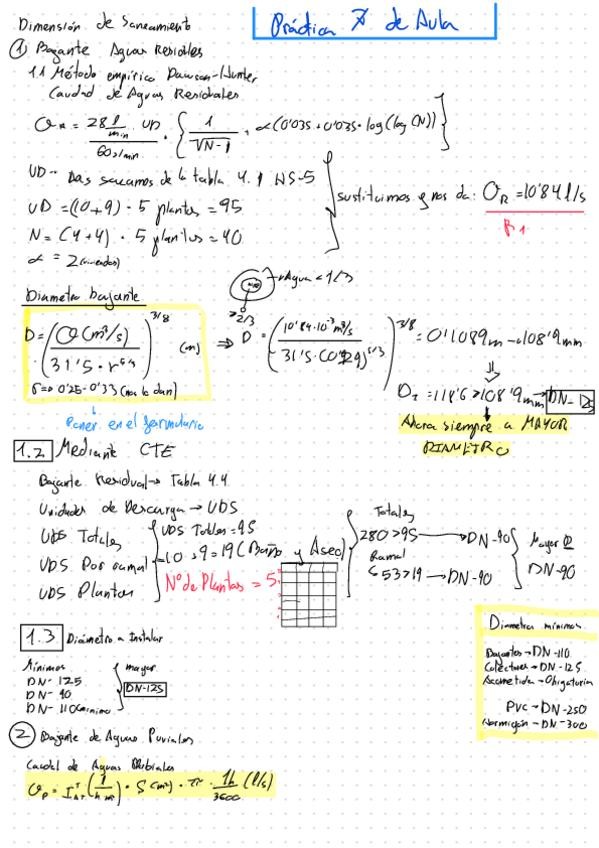 Dimensión de Saneamiento
Práctica 7 de Aula
① Bajante Aguas Residales
1.1 Método empírico Dawson-Hunter
Caudal de Aguas Residuales
Q_R = (28 l/min UD / 60 s/min) · {1/√(N-1) + α(0'035 + 0'035 · log(log(N)))}
UD → Las sacamos de la tabla 4.1 HS-5
UD = (10+9) · 5 plantas = 95
N = (4+4) · 5 plantas = 40
α = 2 (viviendas)
sustituimos y nos da: Q_R = 10'84 l/s
Diametro bajante
→ Agua < 1/3
>2/3
D = (Q (m³/s) / 31'5 · r^5/3)^3/8 (m)
⇒ D = (10'84·10⁻³ m³/s / 31'5 · (0'29)^5/3)^3/8 = 0'1089m → 108'9mm
r => 0'25 - 0'33 (nos lo dan)
Poner en el formulario
D_I = 118'6 > 108'9mm → DN-125
Ahora siempre a MAYOR
DIAMETRO
1.2 Mediante CTE
Bajante Residual → Tabla 4.4
Unidades de Descarga → UDS
UDS Totales
UDS Por ramal
UDS Plantas
UDS Totales = 95
= 10 + 9 = 19 (Baño y Aseo)
Nº de Plantas = 5
Totales
280 > 95 → DN-90
Ramal
53 > 19 → DN-90
Mayor D
DN-90
1.3 Diámetro a Instalar
Mínimos
DN-125
DN-90
DN-110 (mínimo)
mayor
DN-125
Diametros mínimos
Bajantes → DN-110
Colectores → DN-125
Acometida → Obligatoria
PVC → DN-250
Hormigón → DN-300
② Bajante de Aguas Puviales
Caudal de Aguas Plubiales